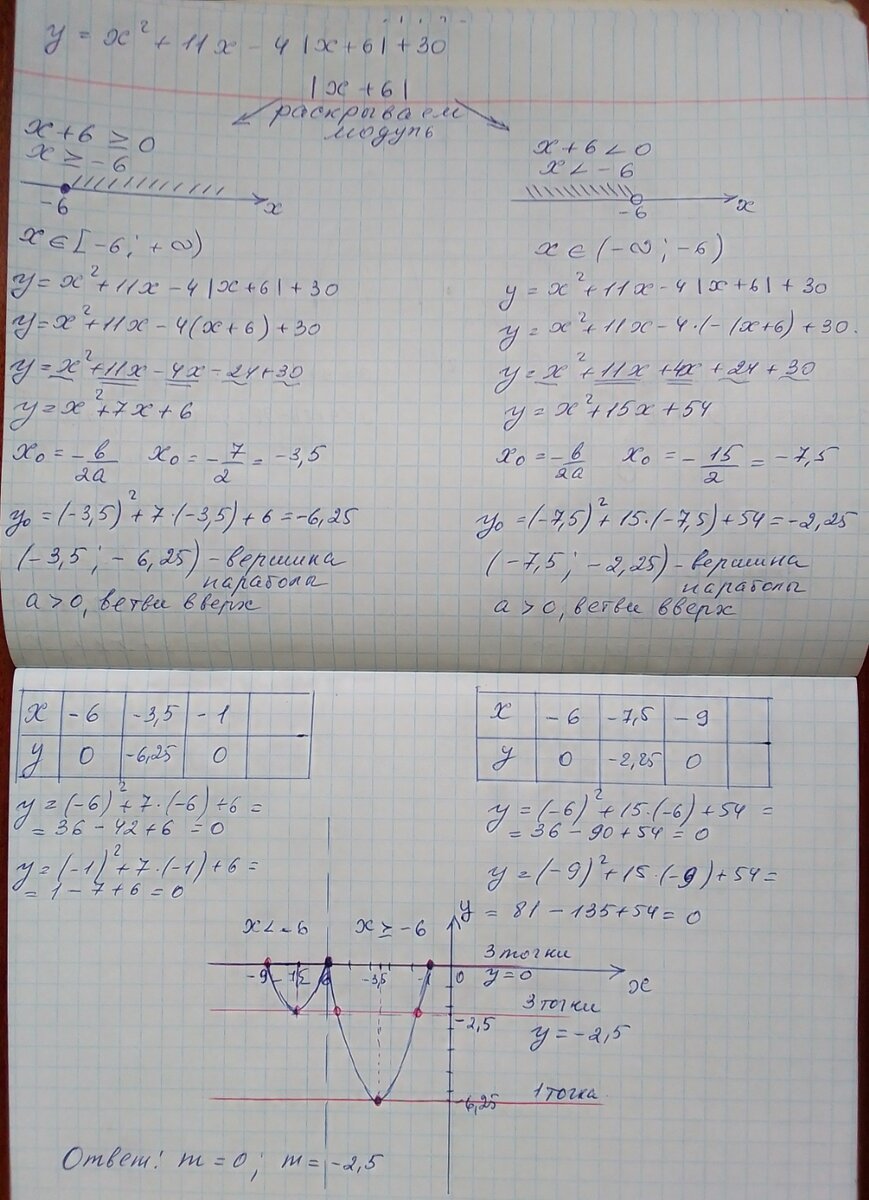 y = x² + 11x - 4 |x+6| + 30
|x+6|
раскрываем
модуль
x+6 ≥ 0
x ≥ -6
-6
x
x ∈ [-6; +∞)
y = x² + 11x - 4 |x+6| + 30
y = x² + 11x - 4(x+6) + 30
y = x² + 11x - 4x - 24 + 30
y = x² + 7x + 6
x₀ = -в/2a x₀ = -7/2 = -3,5
y₀ = (-3,5)² + 7·(-3,5) + 6 = -6,25
(-3,5; -6,25) - вершина
парабола
a > 0, ветви вверх
x+6 < 0
x < -6
-6
x
x ∈ (-∞; -6)
y = x² + 11x - 4 |x+6| + 30
y = x² + 11x - 4·(-(x+6) + 30.
y = x² + 11x + 4x + 24 + 30
y = x² + 15x + 54
x₀ = -в/2a x₀ = -15/2 = -7,5
y₀ = (-7,5)² + 15·(-7,5) + 54 = -2,25
(-7,5; -2,25) - вершина
параболы
a > 0, ветви вверх
x -6 -3,5 -1
y 0 -6,25 0
y = (-6)² + 7·(-6) + 6 =
= 36 - 42 + 6 = 0
y = (-1)² + 7·(-1) + 6 =
= 1 - 7 + 6 = 0
x -6 -7,5 -9
y 0 -2,25 0
y = (-6)² + 15·(-6) + 54 =
= 36 - 90 + 54 = 0
y = (-9)² + 15·(-9) + 54 =
= 81 - 135 + 54 = 0
y
x < -6 x ≥ -6
3 точки
y = 0
-9 -7,5 6 -3,5 -1 0
x
3 точки
-2,5
y = -2,5
-6,25
1 точка
Ответ: m = 0; m = -2,5